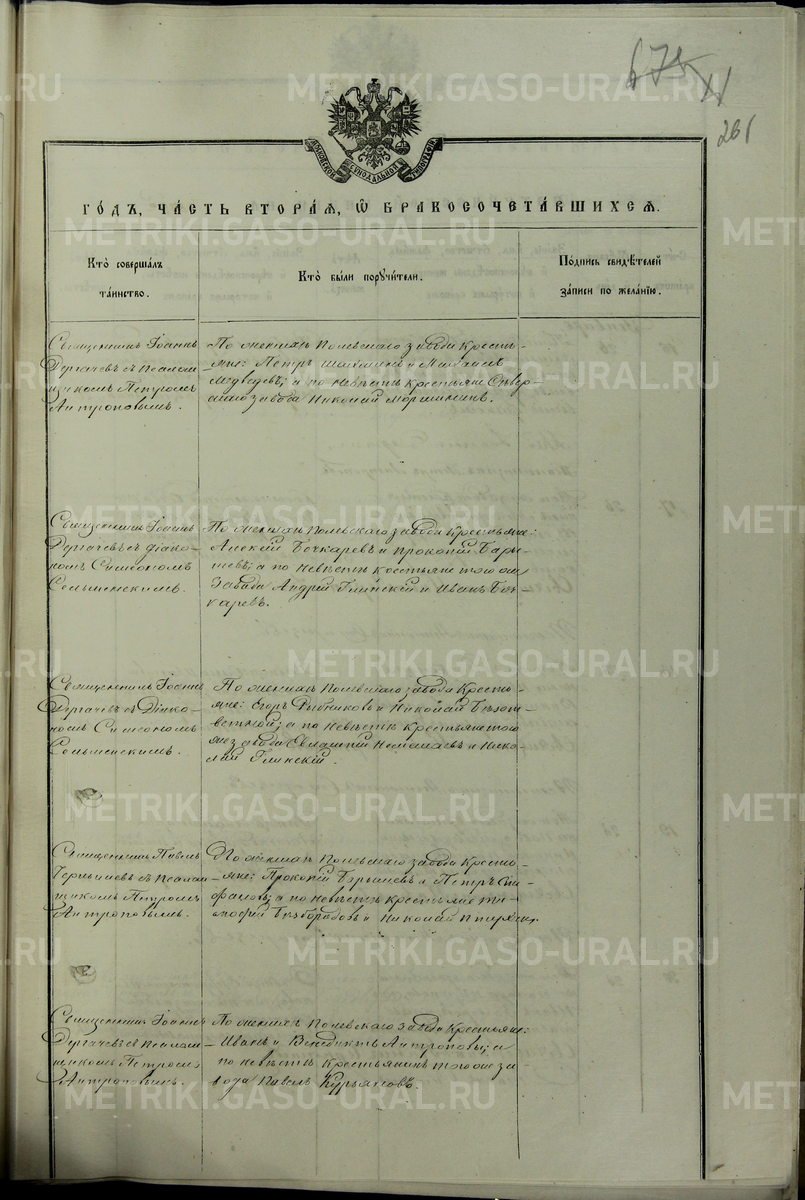 261
МОСКОВСКОЙ СИНОДАЛЬНОЙ ТИПОГРАФІИ
ГО́ДЪ, ЧА́СТЬ ВТОРА́Ѧ, Ѿ БРАКОСОЧЕТА́ВШИХСѦ.
Кто̀ соверша́лъ
та́инство.
Кто̀ бы́ли порꙋчи́тели.
По́дпись свидѣ́телей
за́писи по жела́нїю.
Священникъ Іоаннъ
Дергачевъ съ псалом
щикомъ Петромъ
Антроповымъ.
По женихѣ Полевскаго завода кресть-
яне: Петръ и Михаилъ
Медведевъ; а по невѣстѣ крестьян Сѣвер-
скаго завода Николай
Священникъ Іоаннъ
Дергачевъ съ діако-
номъ Симеономъ
Сельменскимъ.
По женихѣ Полевскаго завода крестьяне:
Алексѣй Бочкаревъ и Прокопій Бары-
шевъ; а по невѣстѣ крестьяне того же
завода Андрей Глинскій и Иванъ Боч-
каревъ.
Священникъ Іоаннъ
Дергачевъ съ Діако-
номъ Симеономъ
Сельменскимъ.
По женихѣ Полевскаго завода кресть-
яне: Егоръ и Николай
а по невѣстѣ крестьяне того
же завода и Нико-
лай Глинскій.
Священникъ Павелъ
Чернышевъ съ псалом
щикомъ Петромъ
Антроповымъ.
По женихѣ Полевскаго завода кресть-
яне: Прокопій Барышевъ и Петръ Сте-
фановъ; а по невѣстѣ крестьяне Ти-
мофей Безбородовъ и Николай
Священникъ Іоаннъ
Дергачевъ съ псалом-
щикомъ Петромъ
Антроповымъ.
По женихѣ Полевскаго завода крестьяне:
Иванъ и Венедиктъ Антроповы; а
по невѣстѣ крестьянинъ того же за
вода Павелъ Курьяковъ.
METRIKI.GASO-URAL.RU